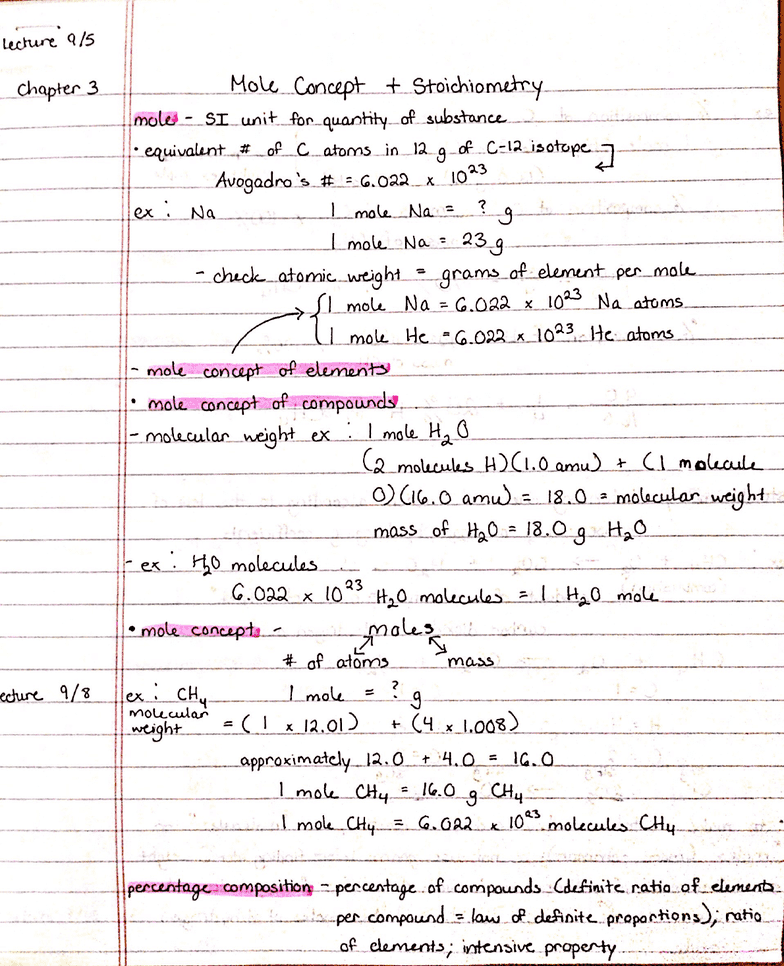 Lecture 9/5
Chapter 3
Mole Concept + Stoichiometry
mole - SI unit for quantity of substance
• equivalent # of C atoms in 12 g of C-12 isotope
Avogadro's # = 6.022 x 10²³
ex: Na 1 mole Na = ? g
1 mole Na = 23 g
- check atomic weight = grams of element per mole
1 mole Na = 6.022 x 10²³ Na atoms
1 mole He = 6.022 x 10²³ He atoms
- mole concept of elements
• mole concept of compounds
- molecular weight ex: 1 mole H₂O
(2 molecules H)(1.0 amu) + (1 molecule
O)(16.0 amu) = 18.0 = molecular weight
mass of H₂O = 18.0 g H₂O
- ex: H₂O molecules
6.022 x 10²³ H₂O molecules = 1 H₂O mole
• mole concept - moles
# of atoms mass
ecture 9/8
ex: CH₄ 1 mole = ? g
molecular
weight = (1 x 12.01) + (4 x 1.008)
approximately 12.0 + 4.0 = 16.0
1 mole CH₄ = 16.0 g CH₄
1 mole CH₄ = 6.022 x 10²³ molecules CH₄
percentage composition - percentage of compounds (definite ratio of elements
per compound = law of definite proportions); ratio
of elements; intensive property